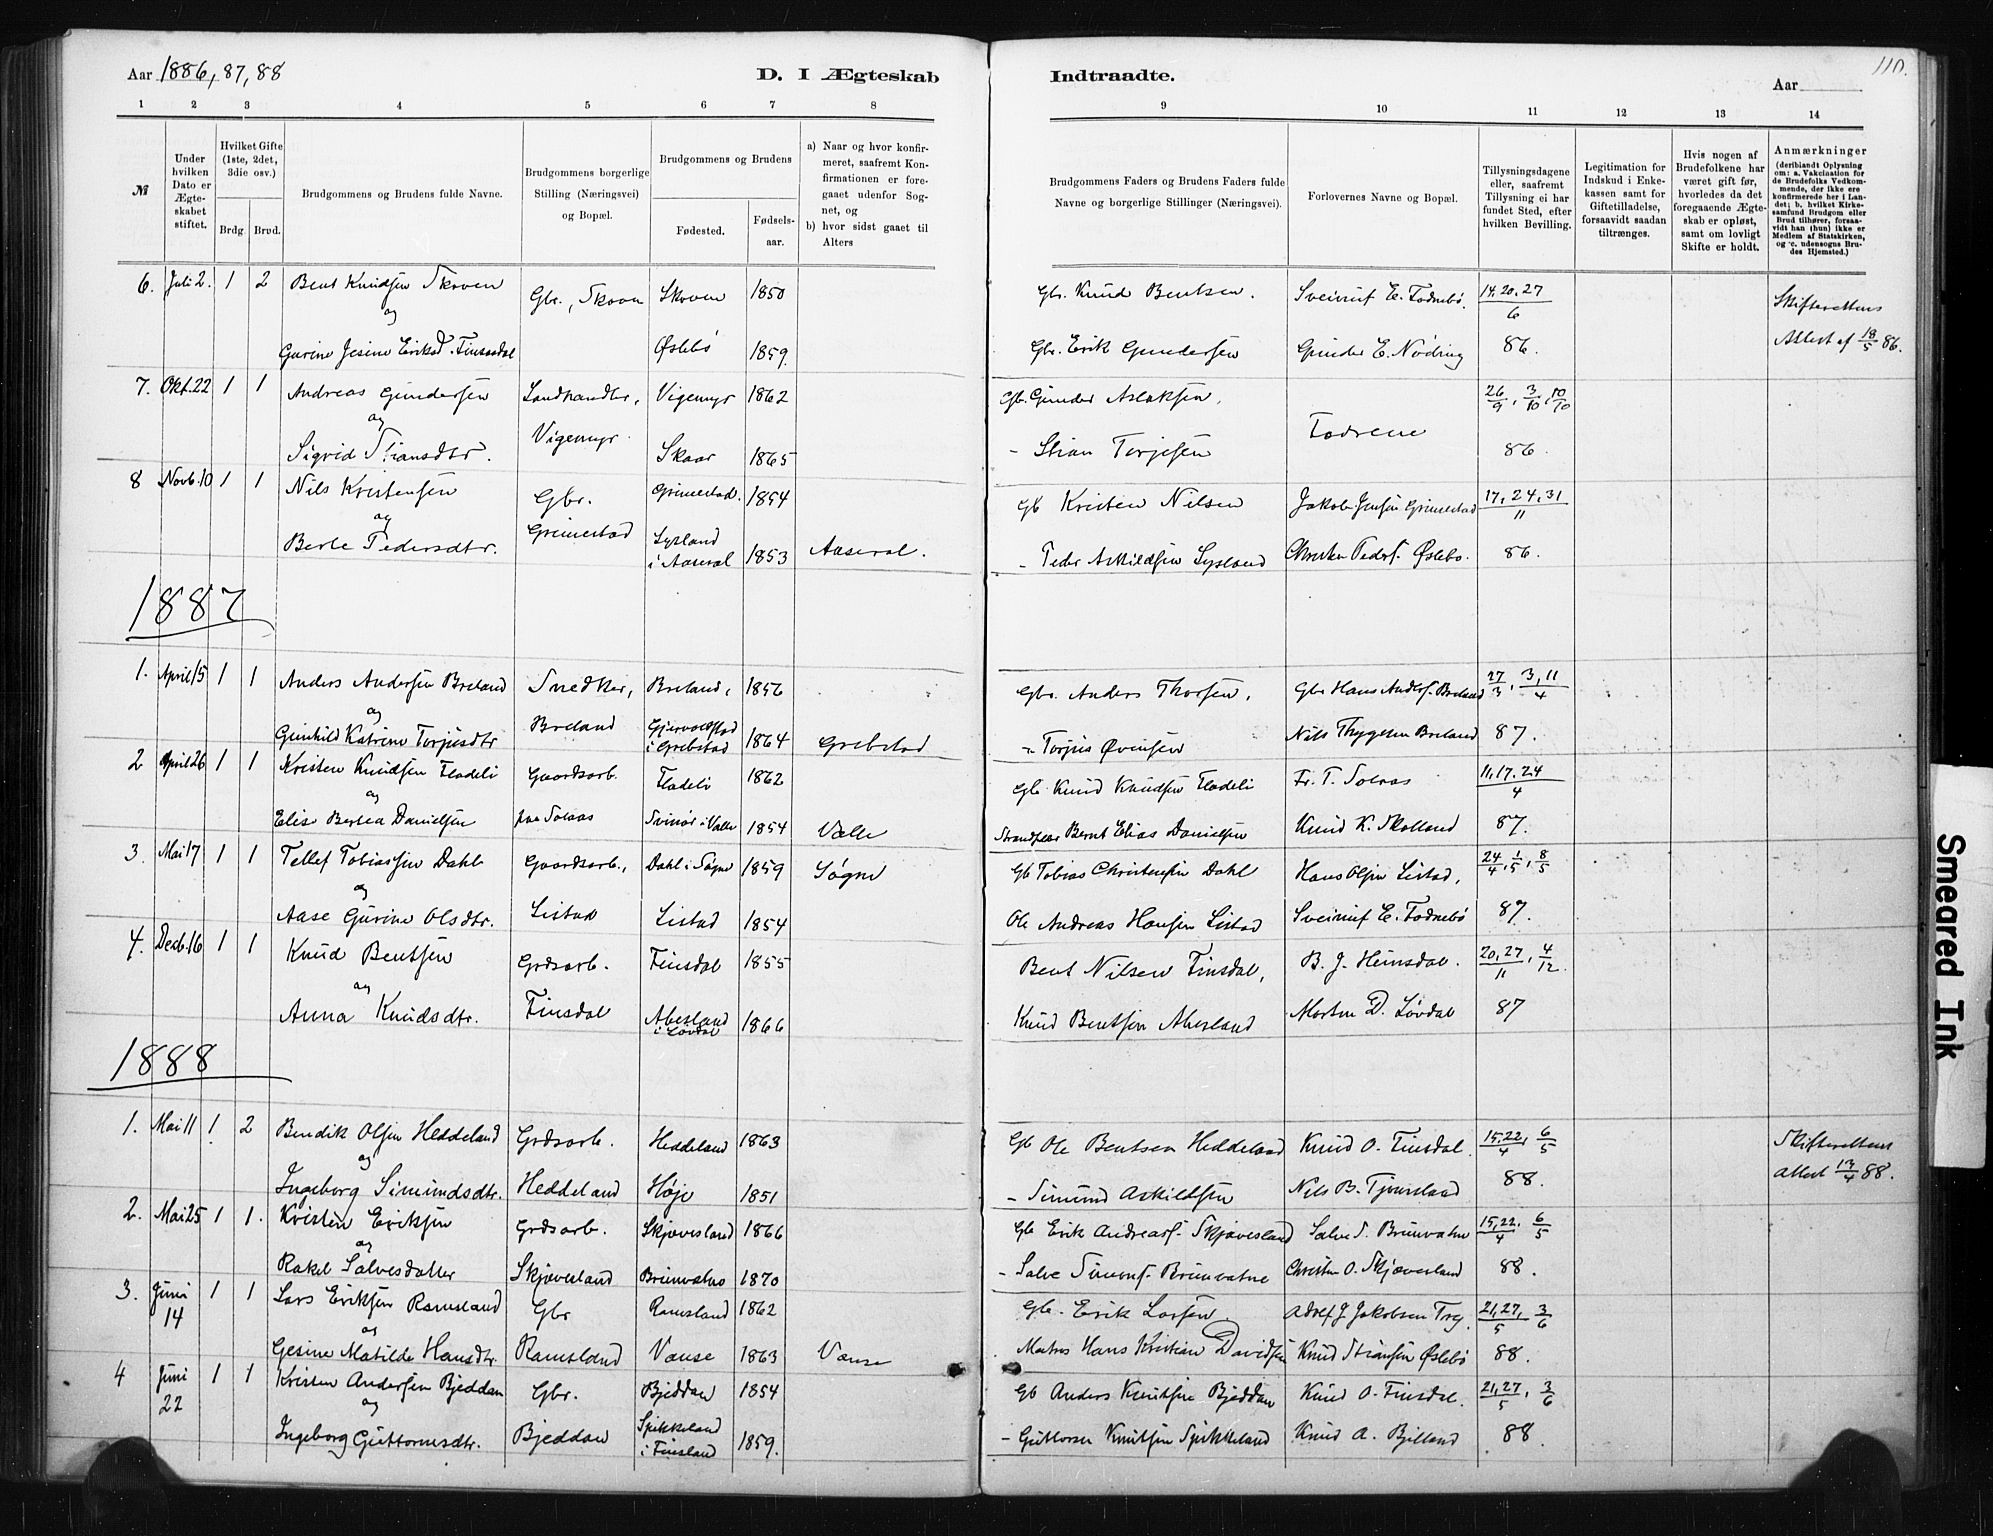 Aar 1886, 87, 88
D. I Ægteskab
Indtraadte.
110.
Aar
1 2 3 4 5 6 7 8 9 10 11 12 13 14
№
Under hvilken Dato er Ægteskabet stiftet.
Hvilket Gifte (1ste, 2det, 3die osv.)
Brdg. Brud.
Brudgommens og Brudens fulde Navne.
Brudgommens borgerlige Stilling (Næringsvei) og Bopæl.
Brudgommens og Brudens
Fødested. Fødsels-aar.
a) Naar og hvor konfirmeret, saafremt Konfirmationen er foregaaet udenfor Sognet, og
b) hvor sidst gaaet til Alters
Brudgommens Faders og Brudens Faders fulde Navne og borgerlige Stillinger (Næringsvei).
Forlovernes Navne og Bopæl.
Tillysningsdagene eller, saafremt Tillysning ei har fundet Sted, efter hvilken Bevilling.
Legitimation for Indskud i Enkekassen samt for Giftetilladelse, forsaavidt saadan tiltrænges.
Hvis nogen af Brudefolkene har været gift før, hvorledes da det foregaaende Ægteskab er opløst, samt om lovligt Skifte er holdt.
Anmærkninger
(deriblandt Oplysning om: a. Vakcination for de Brudefolks Vedkommende, der ikke ere konfirmerede her i Landet; b. hvilket Kirkesamfund Brudgom eller Brud tilhører, forsaavidt han (hun) ikke er Medlem af Statskirken, og c. udensogns Brudes Hjemsted.)
6. Juli 2. 1 2 Bent Knudsen Skoven Gbr., Skoven Skoven 1850 Gbr. Knud Bentsen. Sveinuf E. Fodnebø. 14.20.27/6 Skifterettens
og
Gurine Jesine Eriksd. Finsdal Øslebö 1859. Gbr. Erik Gundersen Gunder E. Nøding 86. Attest af 18/5 86.
7. Okt. 22 1 1 Andreas Gundersen Landhandler, Vigemyr 1862 Gb. Gunder Aslaksen. 26/9, 3/10, 10/10
og Vigemyr Fædrene
Sigrid Stiansdtr. Skaar 1865 - Stian Torjesen 86.
8 Novb. 10 1 1 Nils Kristensen Gbr. Grimestad. 1854 Gb Kristen Nilsen Jakob Jensen Grimestad 17, 24, 31/11
og Grimestad
Berte Pedersdtr. Lysland i Aaseral 1853 Aaseral. - Peder Askildsen Lysland Christen Peders. Øslebø. 86.
1887
1. April 15 1 1 Anders Andersen Breland Snedker, Breland, 1856 Gbr. Anders Thorsen, Gbr Hans Anders. Breland 27/3, 3, 11/4
og Breland
Gunhild Katrine Torjusdtr Gjervoldstad i Grebstad 1864 Grebstad - Torjus Øvensen Nils Thygesen Breland 87.
2 April 26 1 1 Kristen Knudsen Flødeli Gaardsarb. Flødeli 1862 Gb. Knud Knudsen Flødeli Fr. T. Solaas 11, 17, 24/4
og
Elise Bertea Danielsen paa Solaas Svinør i Valle 1854 Valle Bernt Elias Danielsen Knud K. Skolland 87.
3. Mai 17 1 1 Tellef Tobiassen Dahl Gaardsarb., Dahl i Søgne 1859 Søgne Gb Tobias Christensen Dahl Hans Olsen Listad, 24/4, 1/5, 8/5
og
Aase Gurine Olsdtr. Listad Listad 1854 Ole Andreas Hansen Listad Sveinuf E. Fodnebø 87.
4. Decb. 16 1 1 Knud Bentsen Grdsarb. Finsdal 1855 Bent Nilsen Finsdal, B. J. Heinsdal. 20, 27/11, 4/12.
og
Anna Knudsdtr. Finsdal Abesland i Løvdal 1866 Knud Bentsen Abesland Morten D. Løvdal 87
1888
1. Mai 11 1 2 Bendik Olsen Heddeland Grdsarb. Heddeland 1863 Gb Ole Bentsen Heddeland Knud O. Finsdal. 15,22/4, 6/5 Skifterettens
og
Ingeborg Simundsdtr. Heddeland Høje 1851 - Simund Askildsen Nils B. Tjomsland 88. attest 13/4 88.
2. Mai 25 1 1. Kristen Eriksen Grdsarb. Skjævesland 1866 Gb Erik Andreass. Skjævesland Salve S. Brunvatne 15,22/4, 6/5
og
Rakel Salvesdatter Skjævesland Brunvatne 1870 - Salve Simons. Brunvatne Christen O. Skjævesland 88.
3. Juni 14 1 1 Lars Eriksen Ramsland Gbr Ramsland 1862 Gbr. Erik Larsen Adolf J Jakobsen Try. 21,27/5, 3/6
og
Gesine Matilde Hansdtr. Ramsland Vanse 1863 Vanse Matros Hans Kristian Davidsen Knud Stiansen Øslebø 88.
4 Juni 22 1 1 Kristen Andersen Bjeddan Gbr. Bjeddan 1854 Gb Anders Knutsen Bjeddan Knud O. Finsdal. 21,27/5, 3/6
og
Ingeborg Guttormsdtr. Bjeddan Spikkeland i Finsland 1859. - Guttorm Knutsen Spikkeland Knud A. Bjelland 88.
Smeared Ink